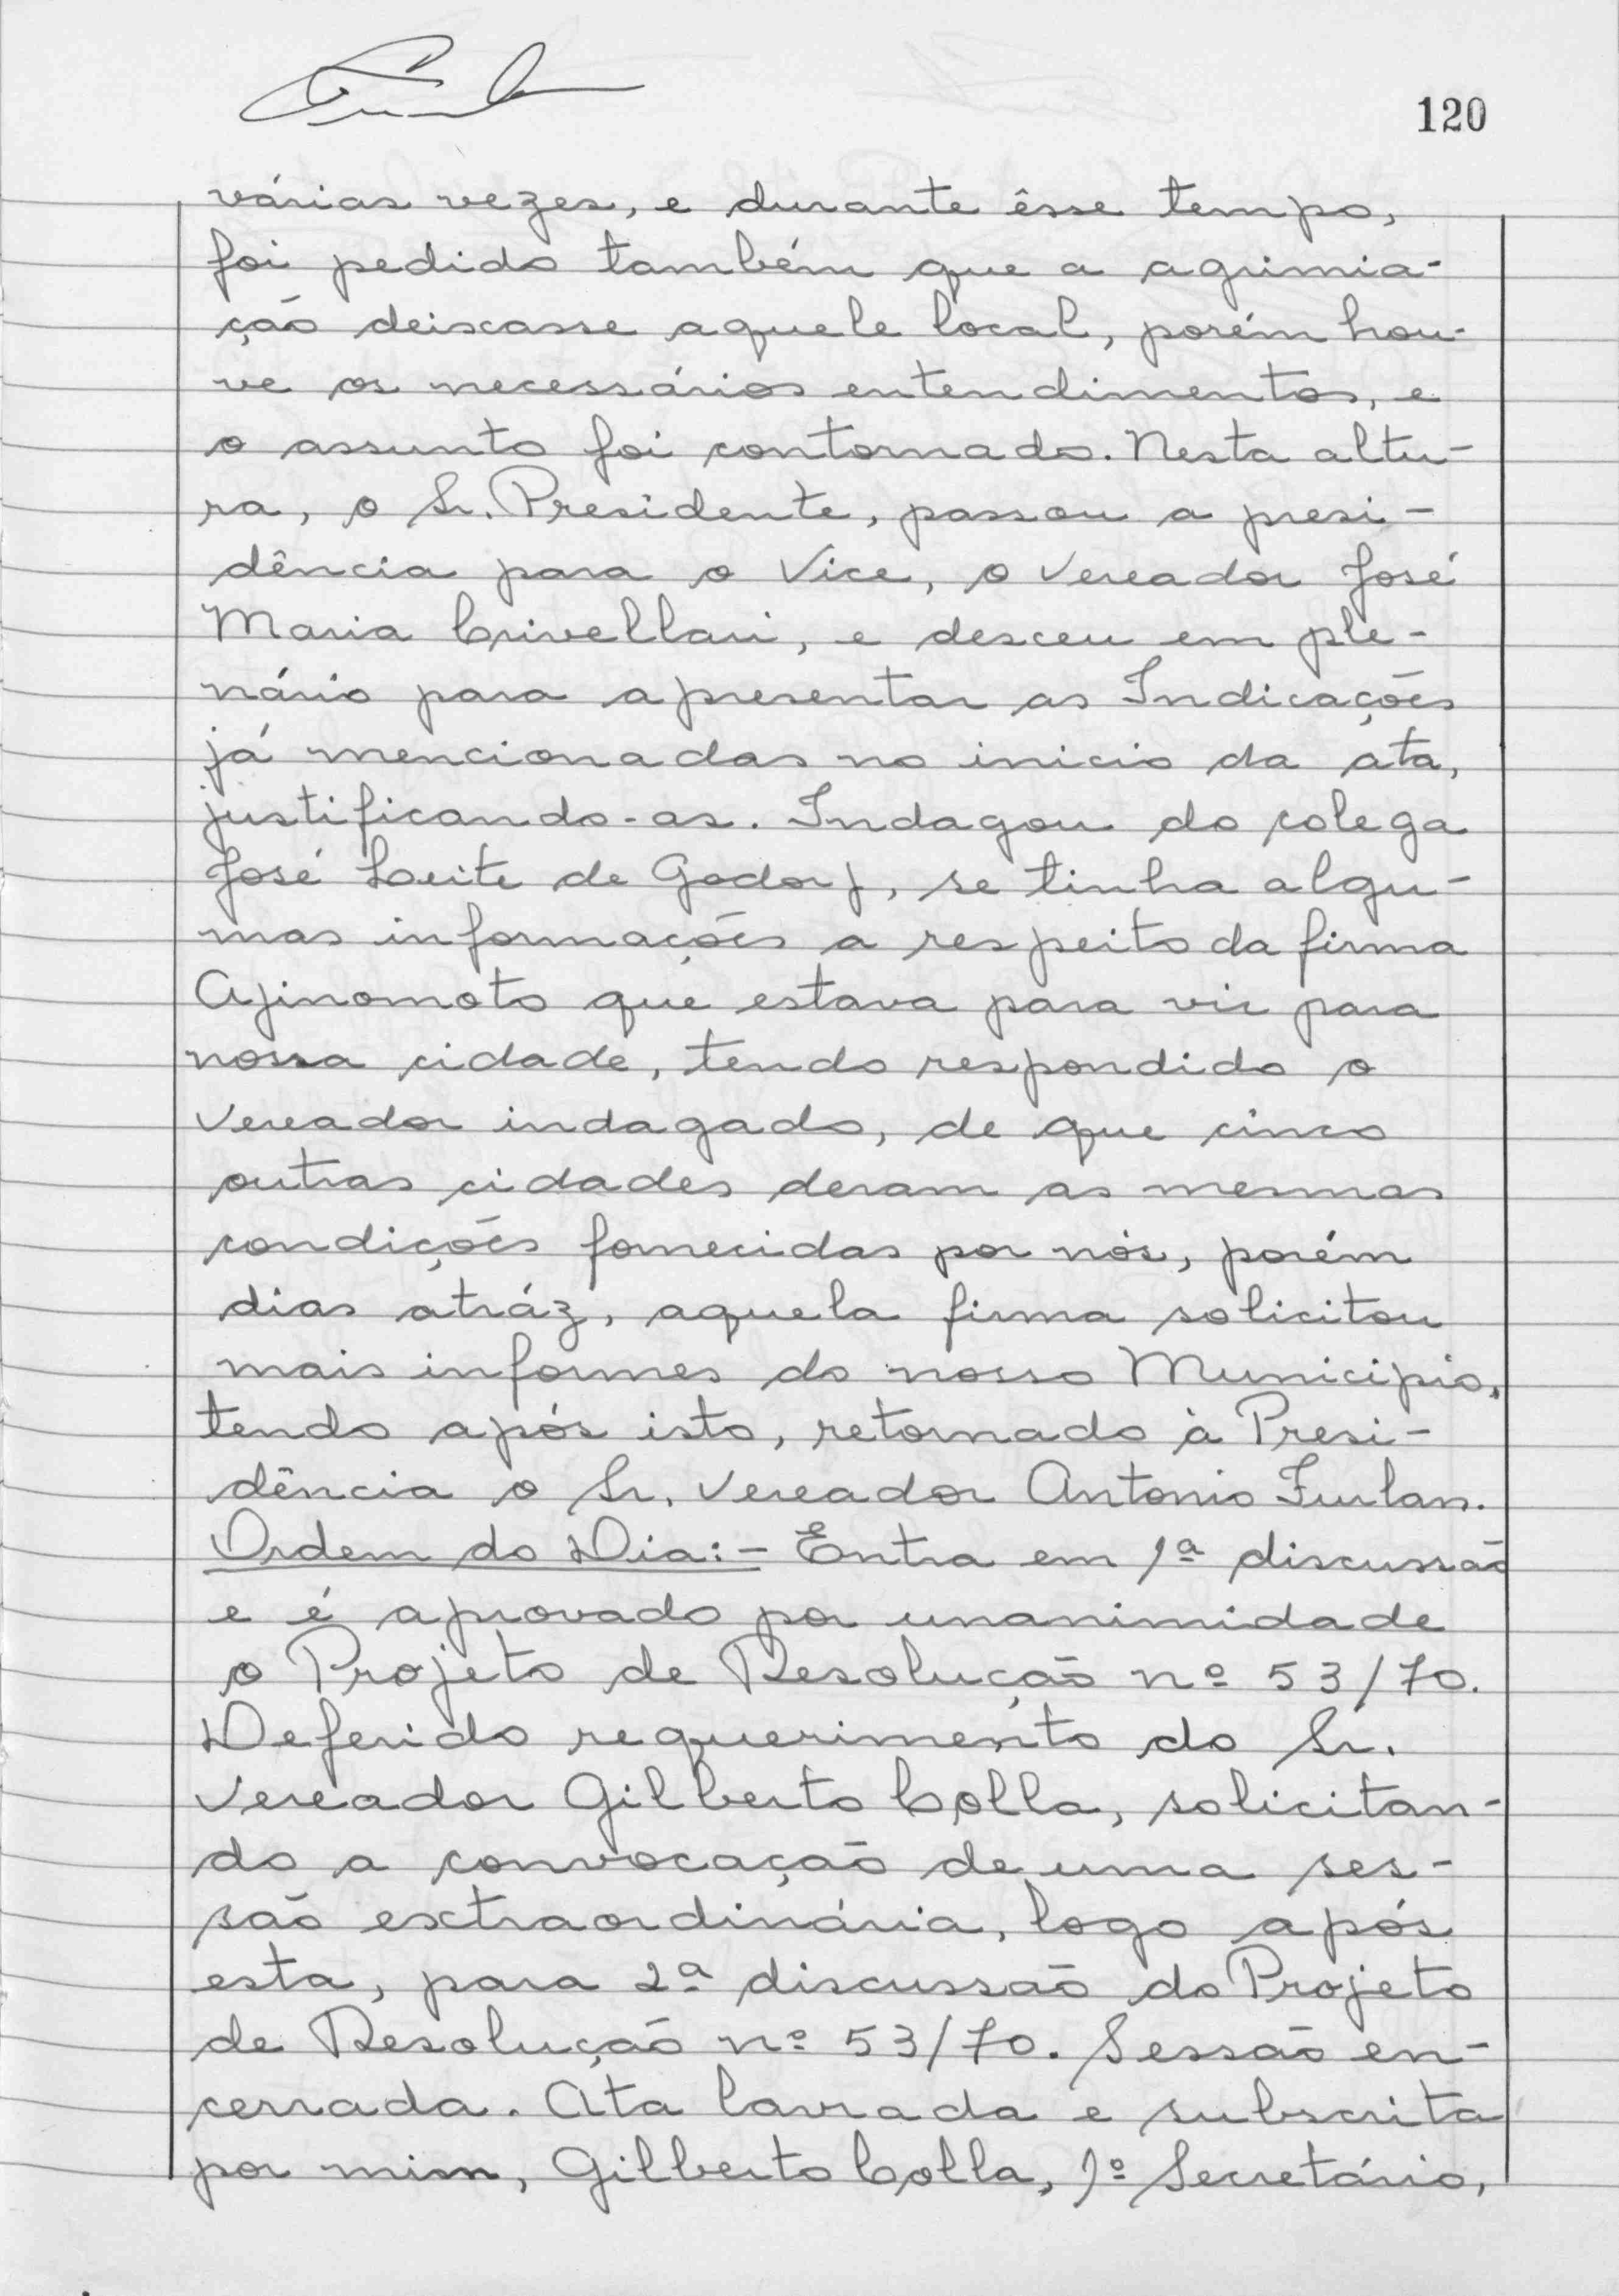 120
várias vezes, e durante êsse tempo,
foi pedido também que a agrimia-
ção deixasse aquele local, porém hou-
ve os necessários entendimentos, e
o assunto foi contornado. Nesta altu-
ra, o Sr. Presidente, passou a presi-
dência para o Vice, o Vereador José
Maria Crivellari, e desceu em ple-
nário para apresentar as Indicações
já mencionadas no inicio da ata,
justificando-as. Indagou do colega
José Leite de Godoy, se tinha algu-
mas informações a respeito da firma
Ajinomoto que estava para vir para
nossa cidade, tendo respondido o
Vereador indagado, de que cinco
outras cidades deram as mesmas
condições fornecidas por nós, porém
dias atráz, aquela firma solicitou
mais informes do nosso Municipio,
tendo após isto, retornado à Presi-
dência o Sr. Vereador Antonio Furlan.
Ordem do Dia:- Entra em 1ª discussão
e é aprovado por unanimidade
o Projeto de Resolução nº 53/70.
Deferido requerimento do Sr.
Vereador Gilberto Colla, solicitan-
do a convocação de uma ses-
são extraordinária, logo após
esta, para 2ª discussão do Projeto
de Resolução nº 53/70. Sessão en-
cerrada. Ata lavrada e subscrita
por mim, Gilberto Colla, 1º Secretário,